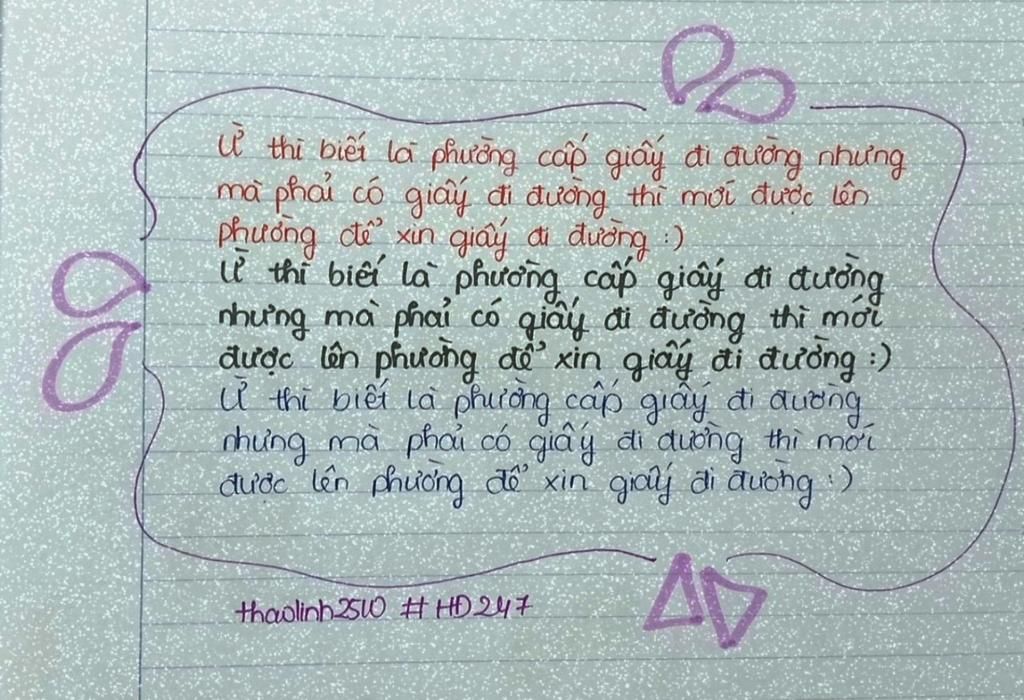 Ừ thì biết là phường cấp giấy đi đường nhưng
mà phải có giấy đi đường thì mới được lên
phường để xin giấy đi đường :)
Ừ thì biết là phường cấp giấy đi đường
nhưng mà phải có giấy đi đường thì mới
được lên phường để xin giấy đi đường :)
Ừ thì biết là phường cấp giấy đi đường
nhưng mà phải có giấy đi đường thì mới
được lên phường để xin giấy đi đường :)
thaolinh2510 #HD247